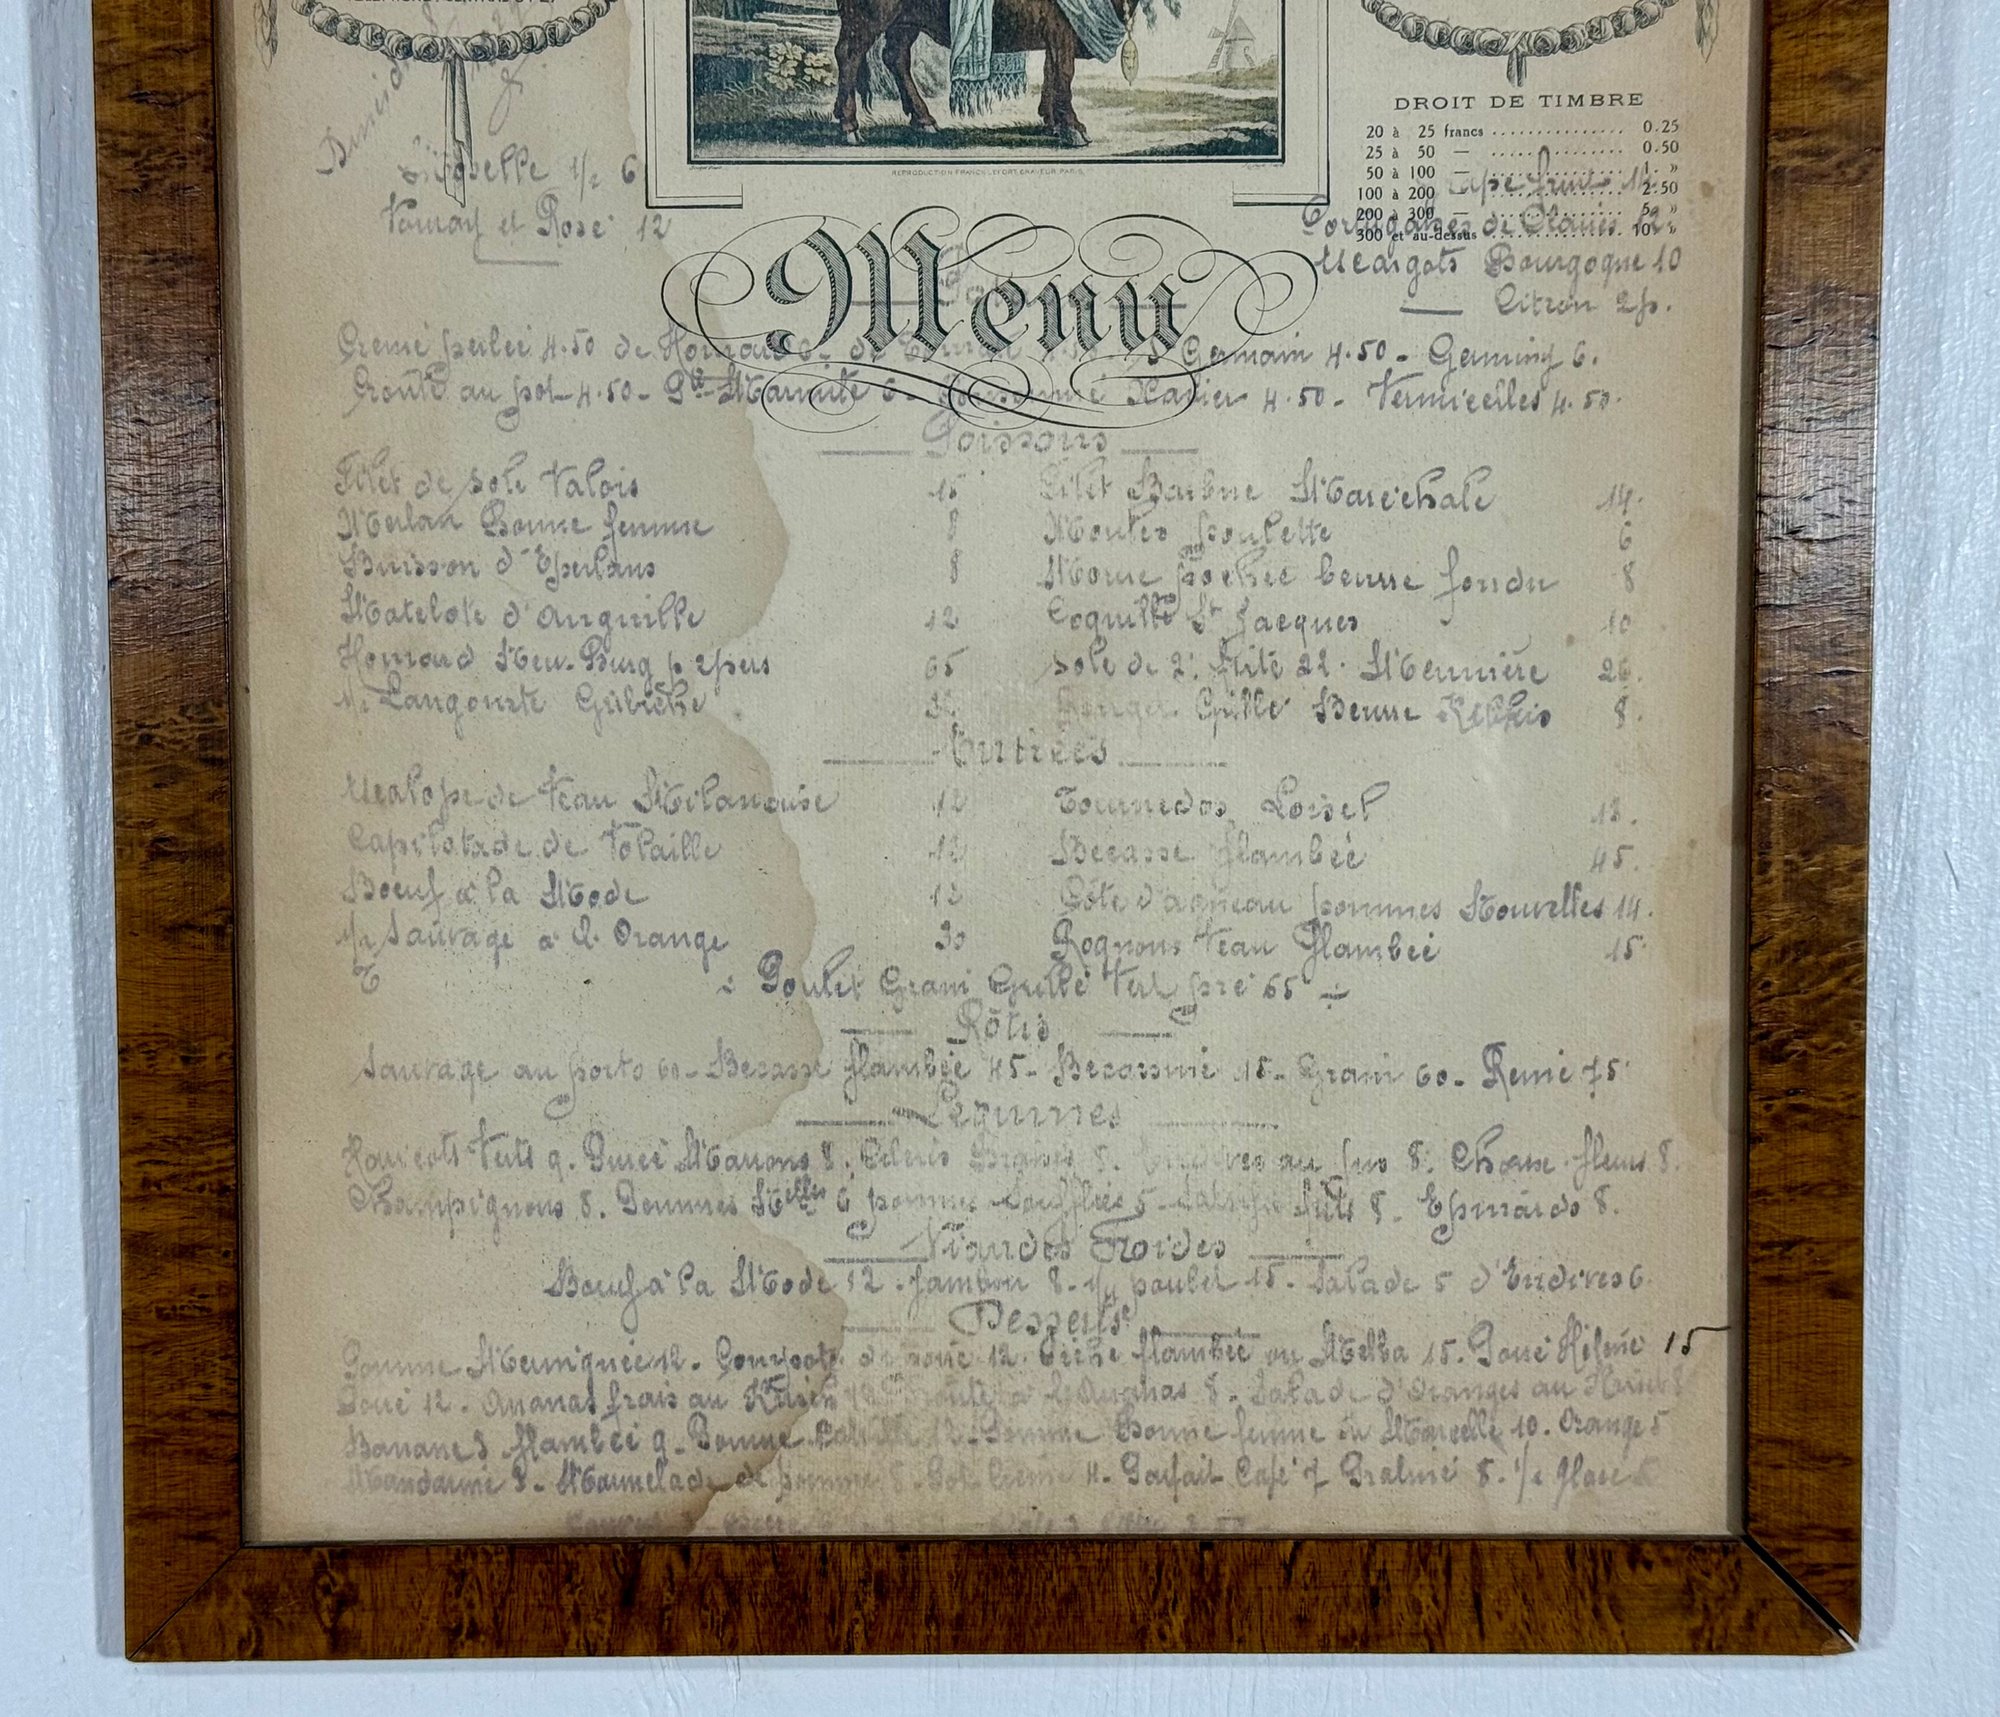 DROIT DE TIMBRE
20 à 25 francs ............... 0.25
25 à 50 — ............... 0.50
50 à 100 — ............... 1. »
100 à 200 — ............... 2.50
200 à 300 — ............... 5 »
300 et au-dessus ............... 10 »
REPRODUCTION FRANCK LEFORT, GRAVEUR, PARIS.
1/2 6
et Rosé 12
fruit
Portugaises de
Escargots Bourgogne 10
Citron 2p.
Menu
Creme perlée 4.50 de Homard Germain 4.50 - Germiny 6.
Croute au pot 4.50 - Pte Marmite 6 - Xavier 4.50 - Vermicelles 4.50.
Poissons
Filet de sole Valois 15
Filet Barbue Marechale 14.
Merlan Bonne femme 8
Moules poulette 6
Buisson d'Eperlans 8
Morue pochée beurre fondu 8
Matelote d'Anguille 12
Coquille St Jacques 10
Homard Neu-Burg p 2 pers 65
Sole de 2. frite 22. Meunière 26.
1/2 Langouste Gribiche
Rouget Grillé Beurre 8.
Entrées
Escalope de Veau Milanaise 12
Tournedos Loisel 13.
Capilotade de Volaille 12
Becasse flambée 45.
Boeuf à la Mode 12
Côte d'agneau pommes Nouvelles 14.
1/2 Sauvage à l'Orange 30
Rognons Veau Flambée 15.
Poulet Grain Grillé Vert pré 65
Rôtis
Sauvage au porto 60 - Becasse flambée 45 - Becassine 18 - Grain 60 - Reine 75.
Legumes
Haricots Verts 9. Purée Marrons 8. Celeris Braisés 8. Endives au jus 8. Choux-fleurs 8.
Champignons 8. Pommes Nelles 6 pommes Soufflées 5 - Salsifis frits 8 - Epinards 8.
Viandes Froides
Boeuf à la Mode 12 - Jambon 8 - 1/4 poulet 15 - Salade 5 d'Endives 6
Desserts
Pomme 12 - Compote de poire 12. Pêche flambée ou Melba 15. Poire Hélène 15
12 - Ananas frais au Kirsch 12 Croute à l'Ananas 8 - Salade d'Oranges au
Banane 3 flambée 9 - Pomme 12 - Pomme Bonne femme 10. Orange 5
Mandarine 3 - Marmelade de pomme 8 - Pot Creme 4 - Parfait Café 7 Praliné 8. 1/2 Glace